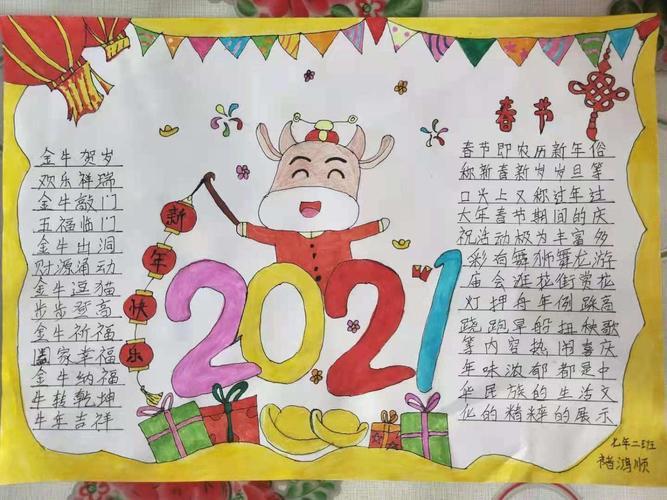 金牛贺岁
欢乐祥瑞
金牛敲门
五福临门
金牛出洞
财源涌动
金牛逗猫
步步登高
金牛祈福
阖家幸福
金牛纳福
牛转乾坤
牛年吉祥
新年快乐
2021
春节
春节即农历新年俗
称新春新岁岁旦等
口头上又称过年过
大年春节期间的庆
祝活动极为丰富多
彩有舞狮舞龙游
庙会逛花街赏花
灯押舟年例踩高
跷跑旱船扭秧歌
等内容热闹喜庆
年味浓郁都是中
华民族的生活文
化的精粹的展示
七年二班
褚鸿顺